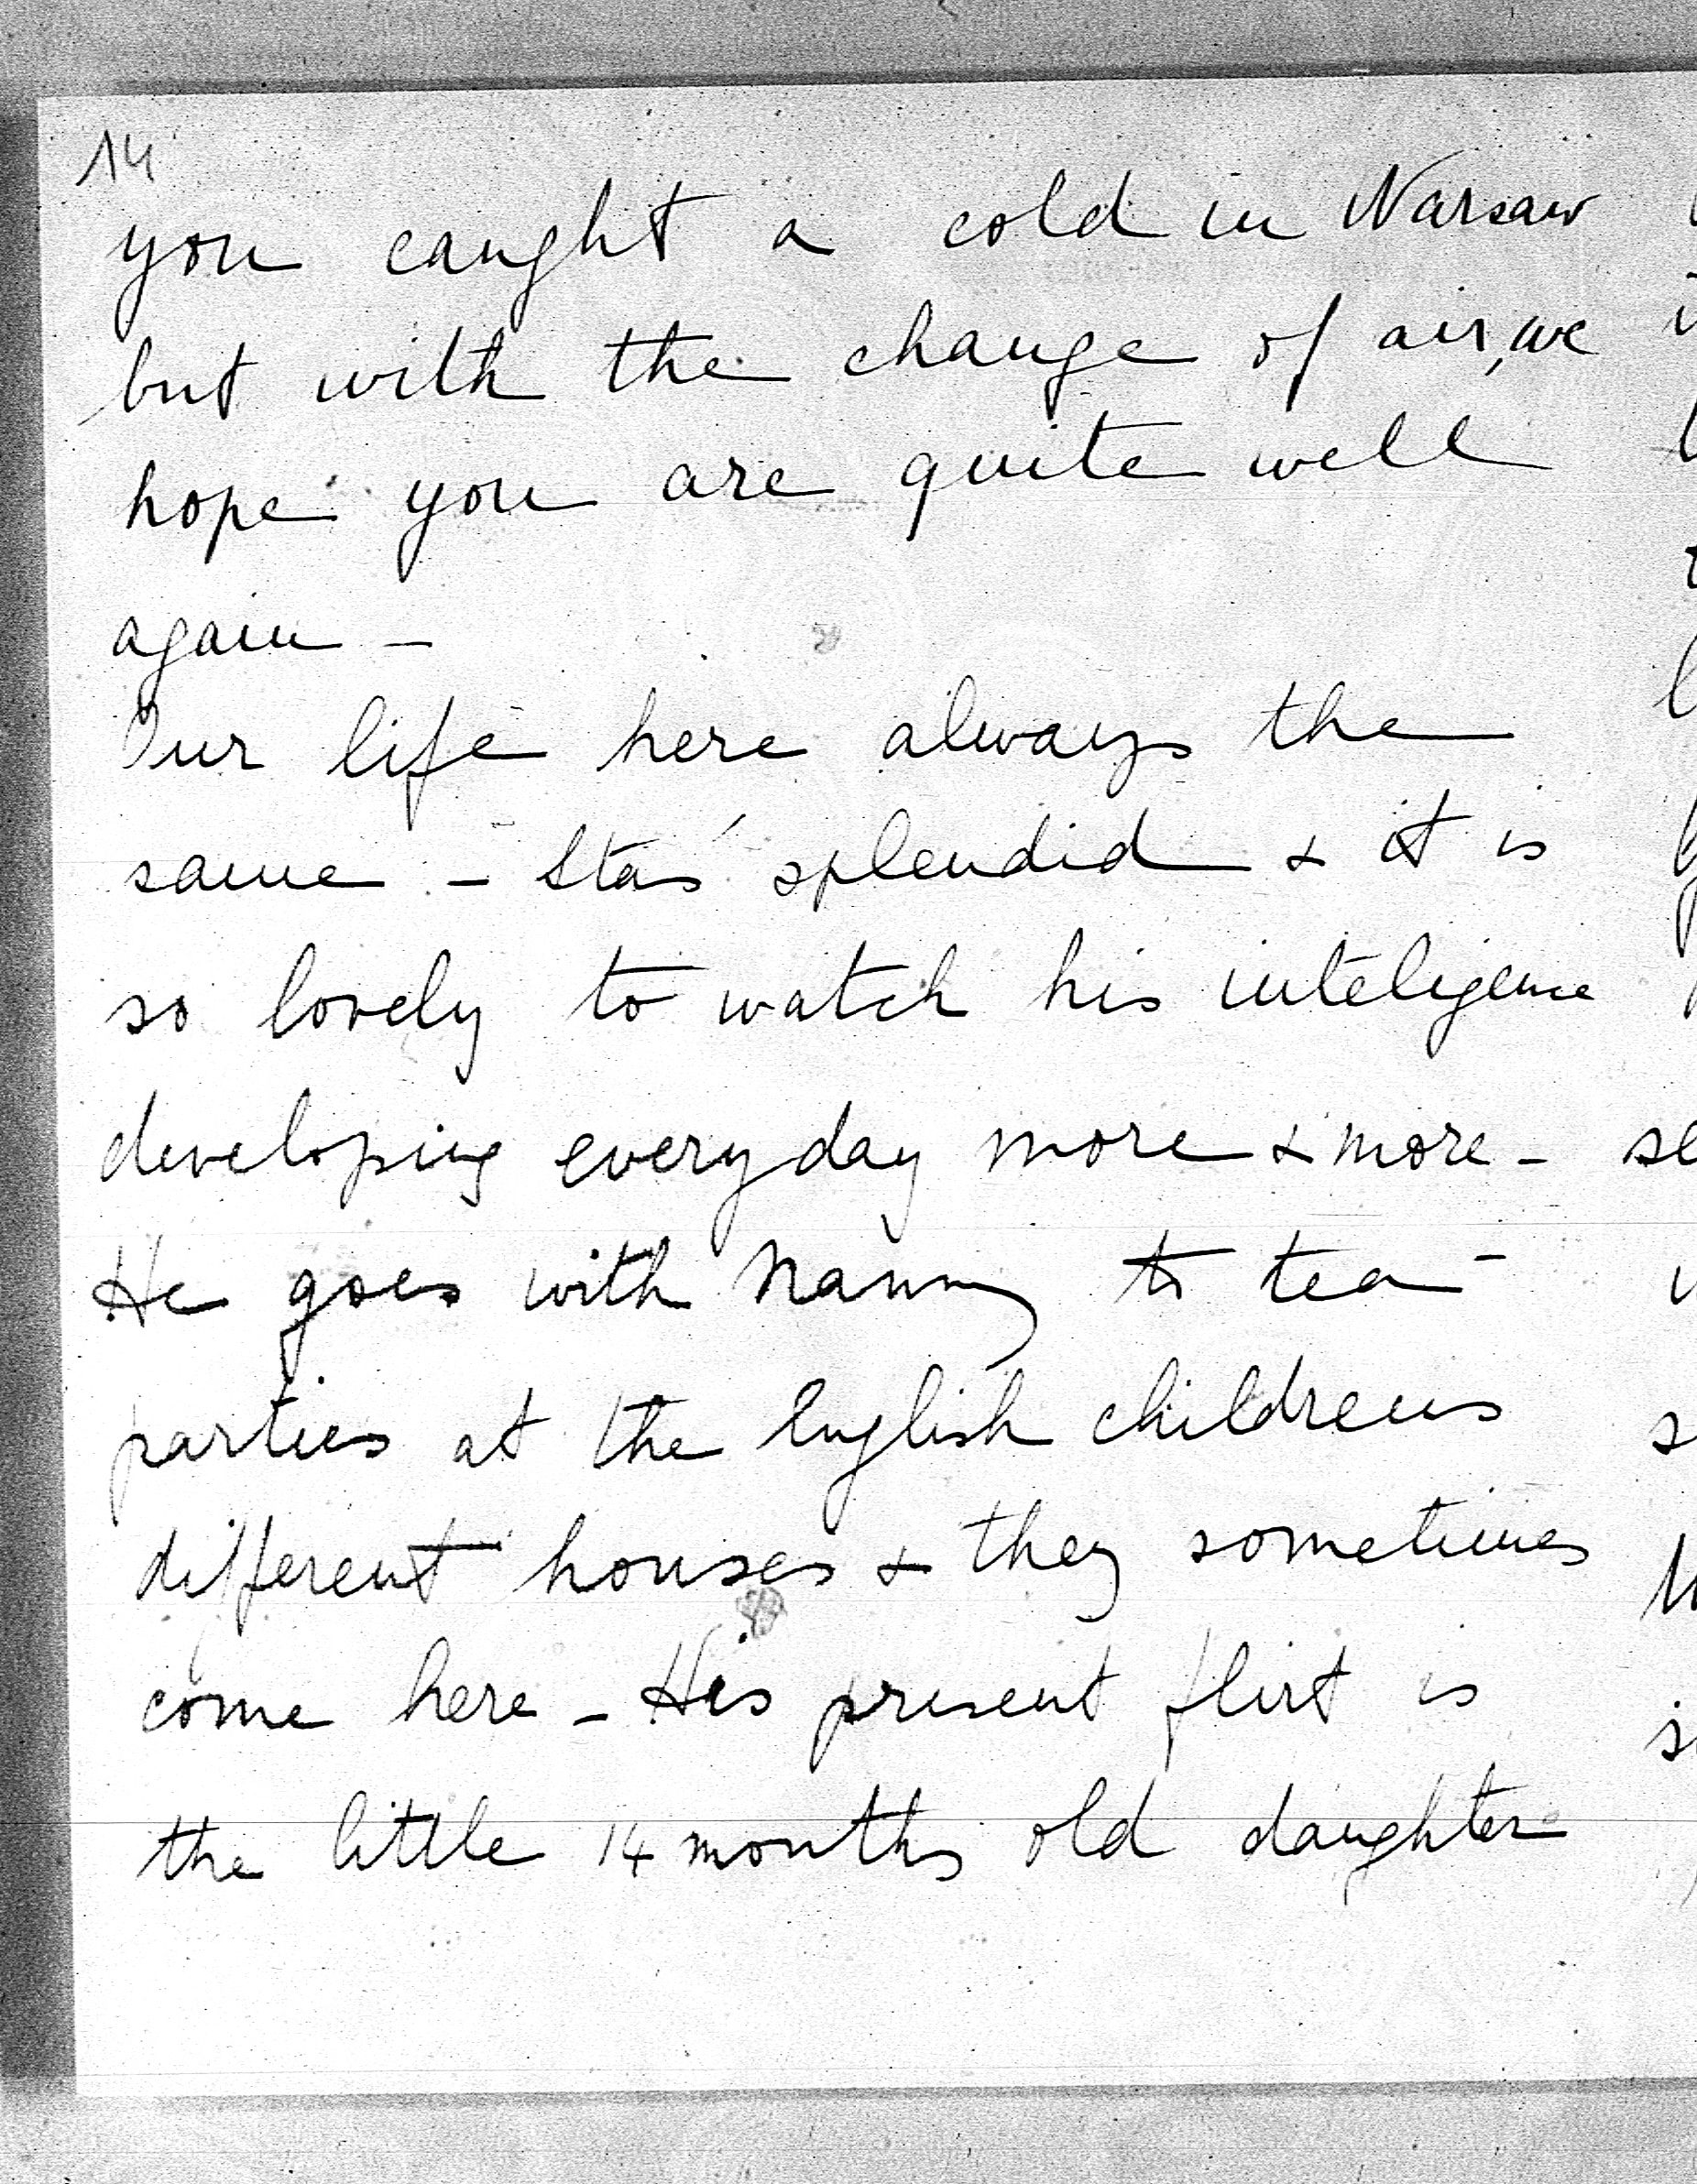 14
you caught a cold in Warsaw
but with the change of air, we
hope you are quite well
again –
Our life here always the
same – Staś splendid & it is
so lovely to watch his inteligence
developing everyday more & more –
He goes with Nanny to tea –
parties at the English childrens
different houses & they sometimes
come here – His present flirt is
the little 14 months old daughter